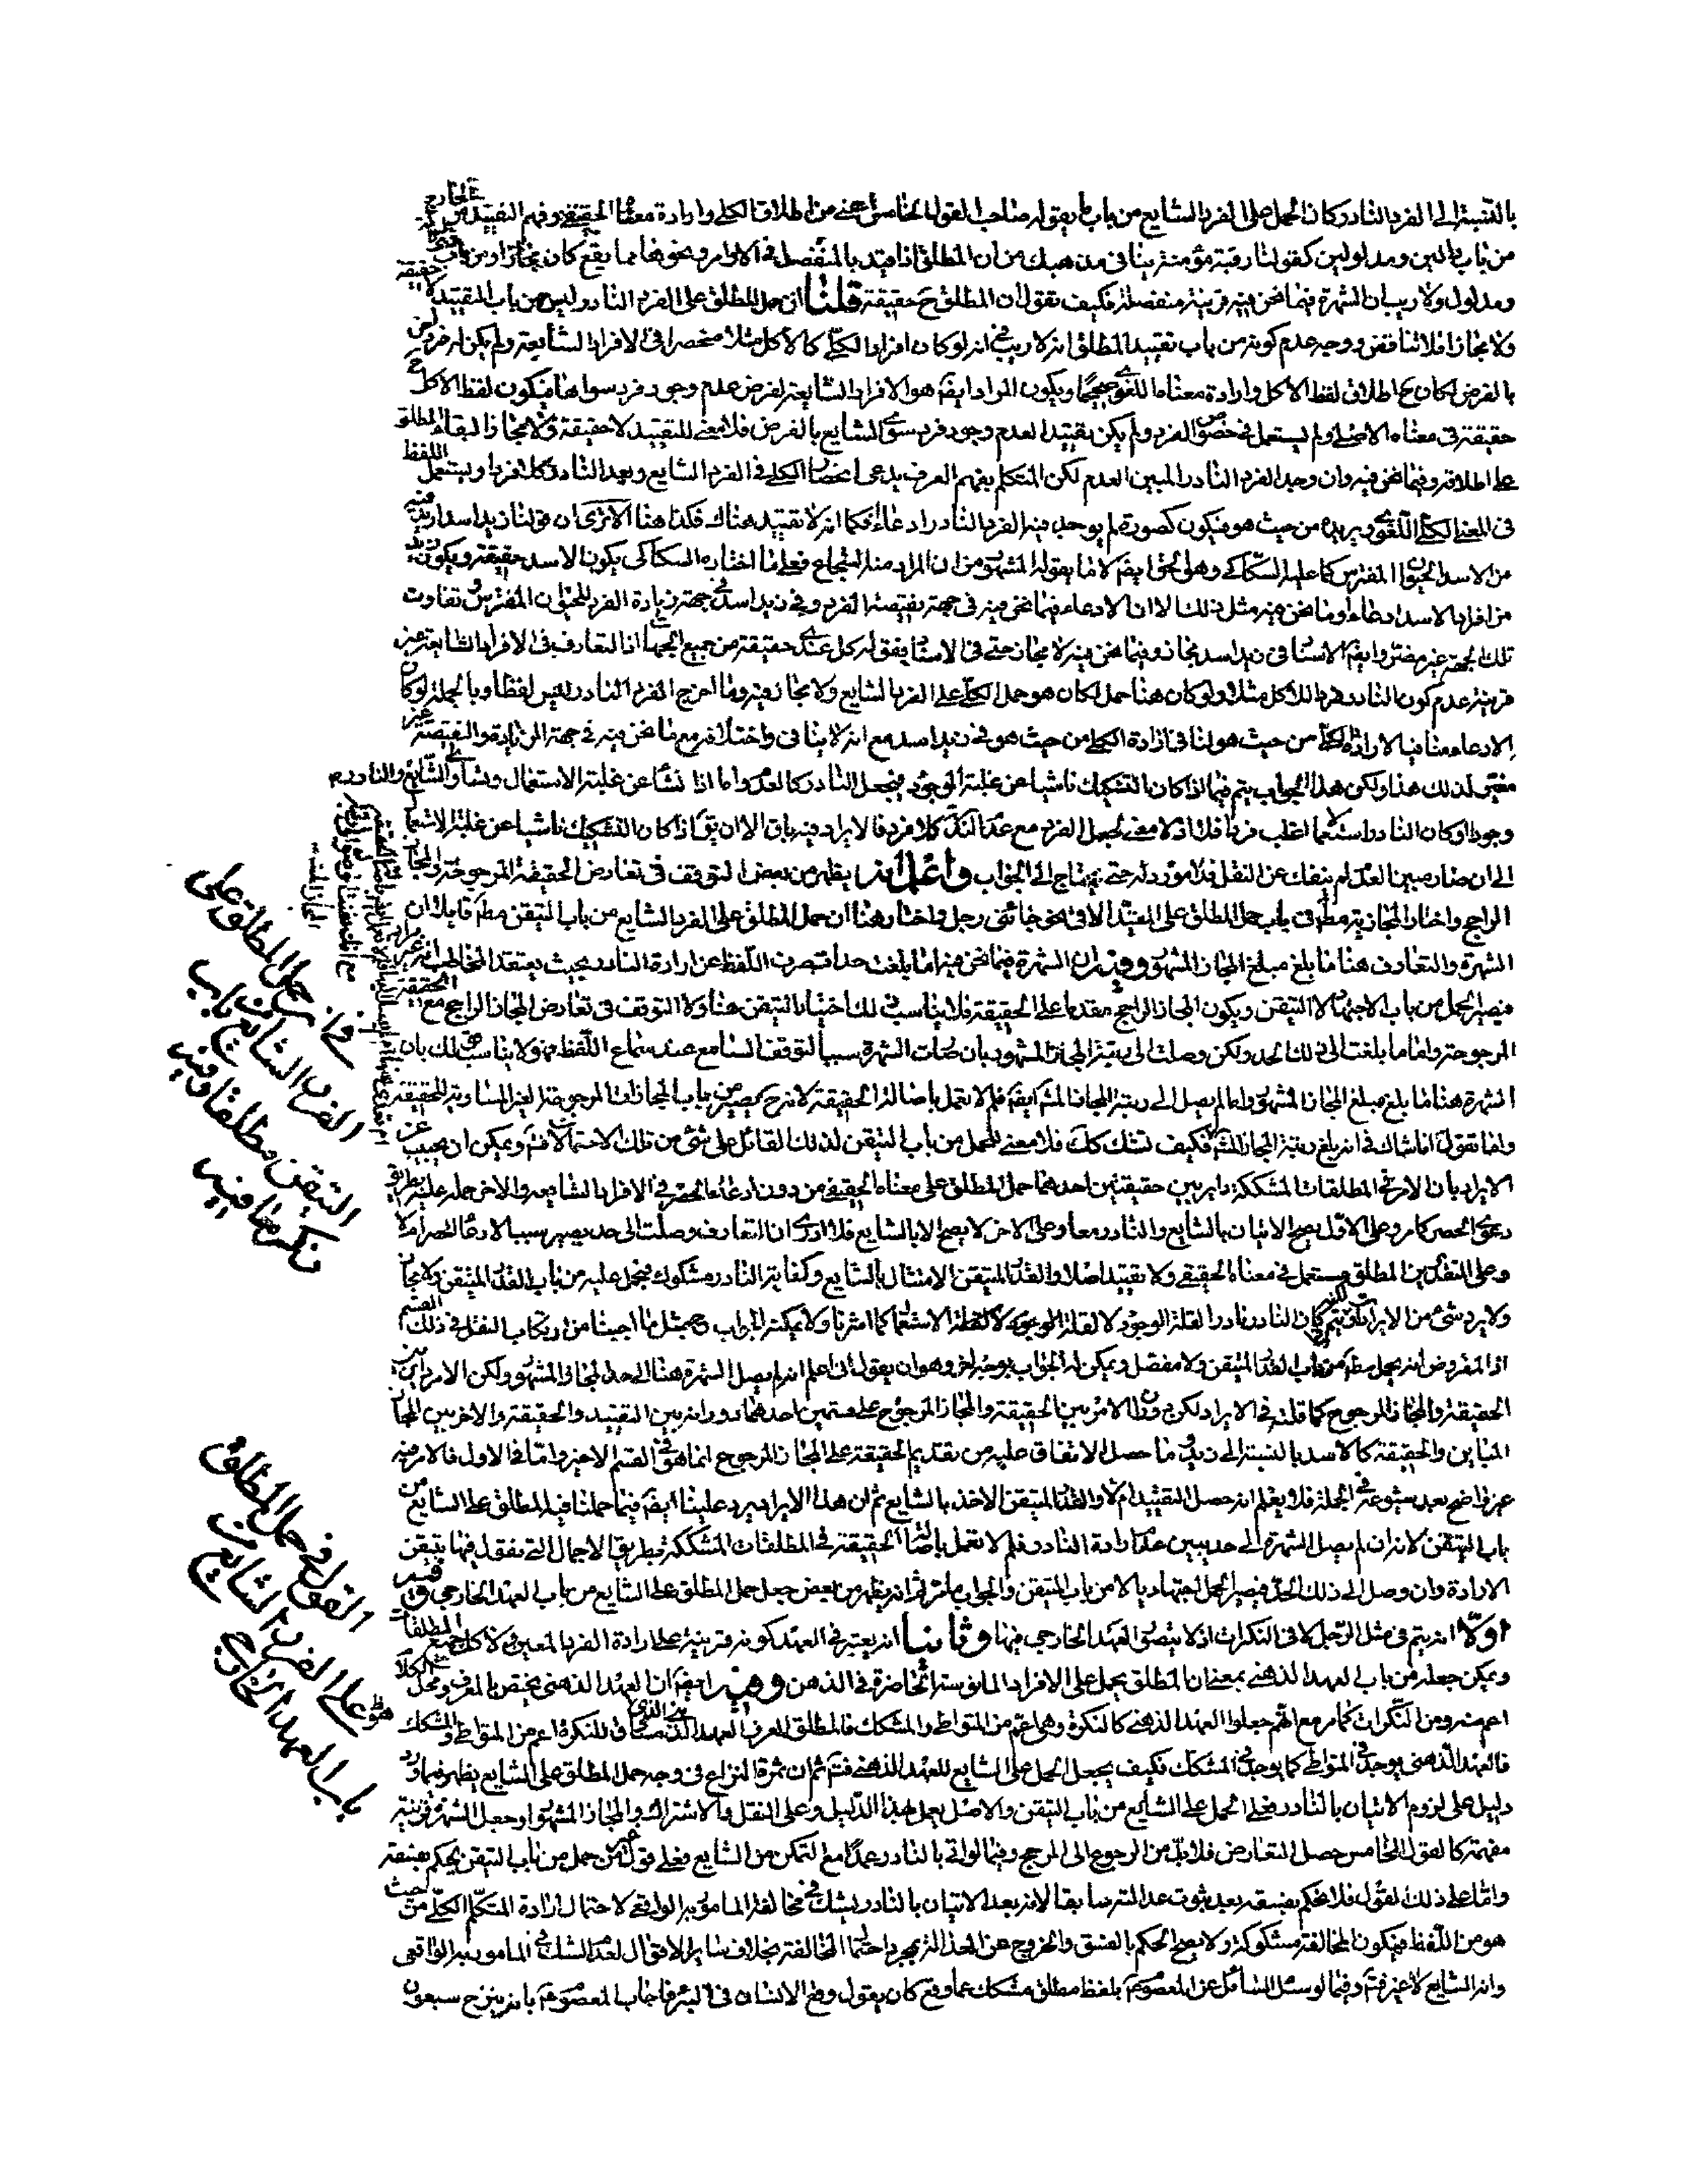 بالنسبة الى الفرد النادر وكان الحمل على الفرد الشايع من باب ما يقوله صاحب القول الخامس اعنى من اطلاق الكلى وارادة معناه الحقيقى وفهم التقييد من الخارج
من باب دالين ومدلولين كقولنا رقبة مؤمنة ينافى مذهبك من ان المطلق اذا قيد بالمنفصل فى الاوامر ونحوها مما يقع كان مجازا ومن باب
ومدلول ولا ريب ان الشهرة فيما نحن فيه قرينة منفصلة فكيف تقول ان المطلق ح حقيقة قلنا ان حمل المطلق على الفرد النادر وليس من باب التقييد لا حقيقة
ولا مجازا فلا تناقض ووجه عدم كونه من باب تقييد المطلق انه لا ريب فى انه لو كان افراد الكلى كالاكل مثلا منحصرا فى الافراد الشايعة ولم يكن له فرد
بالفرض لكان ح اطلاق لفظ الاكل وارادة معناه اللغوى صحيحا ويكون المراد ايضا هو الافراد الشايعة لفرض عدم وجود فرد سواها فيكون لفظ الاكل ح
حقيقة فى معناه الاصلى ولم يستعمل فى خصوص الفرد ولم يكن تقييد لعدم وجود فرد سوى الشايع بالفرض فلا معنى للتقييد لا حقيقة ولا مجازا لبقاء المطلق
على اطلاقه وفيما نحن فيه وان وجد الفرد النادر المبين العدم لكن المتكلم بفهم العرف يدعى انحصار الكلى فى الفرد الشايع ويعد النادر كلا فرد ويستعمل اللفظ
فى المعنى الكلى اللغوى ويريده من حيث هو فيكون كصورة لم يوجد فيه الفرد النادر ادعاء فكما انه لا تقييد هناك فكذا هنا الا ترى ان قولنا زيد اسد اريد فيه
من الاسد الحيوان المفترس كما عليه السكاكى وهو الحق ايضا لا ما يقوله المشهور من ان المراد منه الشجاع فعلى ما اختاره السكاكى يكون الاسد حقيقة ويكون زيد
من افراد الاسد ادعاء وما نحن فيه مثل ذلك الا ان الادعاء فيما نحن فيه فى جهة نقيصة الفرد وفى زيد اسد فى جهة زيادة الفرد للحيوان المفترس وتفاوت
تلك الجهة غير مضر وايضا الاسناد فى زيد اسد مجاز وفيما نحن فيه لا مجاز حتى فى الاسناد فقوله كل عندى حقيقة من جميع الجهات اذ التعارف فى الافراد الشايعة
قرينة عدم كون النادر فردا للاكل مثلا ولو كان هنا حمل لكان هو حمل الكلى على الفرد الشايع ولا مجاز فيه وما اخرج الفرد النادر ليس لفظا وبالجملة لو كان
الادعاء منافيا لارادة الكلى من حيث هو لنافى ارادة الكلى من حيث هو فى زيد اسد مع انه لا ينافى واختلافه مع ما نحن فيه فى جهة الزيادة والنقيصة غير
مغير لذلك هذا ولكن هذا الجواب يتم فيما اذا كان التشكيك ناشيا عن غلبة الوجود فيجعل النادر كالعدم واما اذا نشأ عن غلبة الاستعمال وتساوى الشايع والنادر
وجودا وكان النادر استعمالا اغلب فردا فلا اذ لا معنى لجعل الفرد مع كلا فرد فالايراد فيه باق الا ان يق اذا كان التشكيك ناشيا عن غلبة الاستعمال
الى ان صار مبين العدم لم ينفك عن النقل فلا مورد له حتى يحتاج الى الجواب واعلم انه يظهر من بعض التوقف فى تعارض الحقيقة المرجوحة والمجاز
الراجح واختار المجازية مطلقا فى باب حمل المطلق على المقيد الاتى نحو جائنى رجل واختار هنا ان حمل المطلق على الفرد الشايع من باب التيقن مطلقا قايلا ان
الشهرة والتعارف هنا ما بلغ مبلغ المجاز المشهور وفيه ان الشهرة فيما نحن فيه اما بلغت حدا تصرف اللفظ عن ارادة النادر بحيث يعتقد المخاطب
فيصير الحمل من باب الاجتهاد لا التيقن ويكون المجاز الراجح مقدما على الحقيقة فلا يناسب ذلك اختيار التيقن هنا ولا التوقف فى تعارض المجاز الراجح مع الحقيقة
المرجوحة واما ما بلغت الى ذلك الحد ولكن وصلت الى رتبة المجاز المشهور بان صارت الشهرة سببا لتوقف السامع عند سماع اللفظ فهو لا يناسب قولك بان
الشهرة هنا ما بلغ مبلغ المجاز المشهور واما لم يصل الى رتبة المجاز المشهور ايضا فلم لا تعمل باصالة الحقيقة لانه ح يصير من باب المجازات المرجوحة الغير المساوية للحقيقة
واما تقول انا شاك فى انه بلغ رتبة المجاز المشهور فكيف تشك كك فلا معنى للحمل من باب التيقن لذلك القائل على شئ من تلك الاحتمالات فتم ويمكن ان يجيب عن
الايراد بان الامر فى المطلقات المشككة داير بين حقيقتين احدهما حمل المطلق على معناه الحقيقى من دون ادعاء الحصر فى الافراد الشايعة والاخر حمله عليه بطريق
دعوى الحصر كما مر وعلى الاول يصح الاتيان بالشايع والنادر معا وعلى الاخر لا يصح الا بالشايع فلا ادرى ان التعارف وصلت الى حد يصير سببا لادعاء الحصر ام لا
وعلى التقديرين المطلق مستعمل فى معناه الحقيقى ولا تقييد اصلا والقدر المتيقن الامتثال بالشايع وكفاية النادر مشكوك فيحمل عليه من باب القدر المتيقن ولا مجاز
ولا يرد شئ من الايراد لكنه يتم ان كان النادر نادرا لقلة الوجود لا لقلة الاستعمال كما اشرنا ولا يمكنه الجواب ح بمثل ما اجبنا من ارتكاب النقل فى ذلك القسم
اذ المفروض انه يحمل مطلقا من باب القدر المتيقن ولا مفصل ويمكن له الجواب بوجه اخر وهو ان يقول انا اعلم انه لم يصل الشهرة هنا الى حد المجاز المشهور ولكن الامر داير بين
الحقيقة والمجاز المرجوح كما قلته فى الايراد لكن دوران الامر بين الحقيقة والمجاز المرجوح على قسمين احدهما دورانه بين التقييد والحقيقة والاخر بين المجاز
المباين والحقيقة كالاسد بالنسبة الى زيد وما حصل الاتفاق عليه من تقديم الحقيقة على المجاز المرجوح انما هو فى القسم الاخير واما فى الاول فالامر فيه
غير واضح بعد شيوعه فى الجملة فلا يعلم انه حصل التقييد ام لا والقدر المتيقن الاخذ بالشايع ثم ان هذا الايراد يرد علينا ايضا فيما حملنا فيه المطلق على الشايع من
باب التيقن لانه ان لم يصل الشهرة الى حد يبين عدم ارادة النادر فلم لا تعمل باصالة الحقيقة فى المطلقات المشككة بطريق الاجمال التى تقول فيها بتيقن
الارادة وان وصل الى ذلك الحد فيصير الحمل اجتهاديا لا من باب التيقن والجواب ما مر ثم انه يظهر من بعض جعل حمل المطلق على الشايع من باب العهد الخارجى وفيه
اولا انه يتم فى مثل الرجل لا فى النكرات اذ لا يتصور العهد الخارجى فيها وثانيا انه يعتبر فى العهد كونه قرينة على ارادة الفرد المعين ولا كل جميع المطلقات
ويمكن جعله من باب العهد الذهنى بمعنى ان المطلق يحمل على الافراد المانوسة الحاضرة فى الذهن وفيه ايضا ان العهد الذهنى يختص بالمعرف ومحل الكلام
اعم منه ومن النكرات كما مر مع انهم جعلوا العهد الذهنى كالنكرة وهى اعم من المتواطى والمشكك فالمطلق المعرف العهد الذى مساوق للنكرة اعم من المتواطى والمشكك
فالعهد الذهنى يوجد فى المتواطى كما يوجد فى المشكك فكيف يجعل الحمل على الشايع للعهد الذهنى فتم ثم ان ثمرة النزاع فى وجه حمل المطلق على الشايع يظهر فيما ورد
دليل على لزوم الاتيان بالنادر فعلى الحمل على الشايع من باب التيقن والاصل يعمل بهذا الدليل وعلى النقل والاشتراك والمجاز المشهور وجعل الشهرة قرينة
مفهمة كالقول الخامس حصل التعارض فلا بد من الرجوع الى المرجح وفيما لو اتى بالنادر عمدا مع التمكن من الشايع فعلى قول من حمل من باب التيقن يحكم بفسقه
واما على ذلك القول فلا نحكم بفسقه بعد ثبوت عدالته سابقا لانه بعد الاتيان بالنادر يشك فى مخالفة المامور به الواقعى لاحتمال ارادة المتكلم الكلى من حيث
هو من اللفظ فيكون المخالفة مشكوكة ولا يصح الحكم بالفسق والخروج عن العدالة بمجرد احتمال المخالفة بخلاف ساير الاقوال لعدم الشك فى المامور به الواقعى
وانه الشايع لا غير فتم وفيما لو سئل السائل عن المعصوم بلفظ مطلق مشكك عما وقع كان يقول وقع الانسان فى البئر فاجاب المعصوم بانه ينزح سبعون
فى ان حمل المطلق على
الفرد الشايع من باب
التيقن مطلقا وفيه
نكرها فيه
القول فى حمل المطلق
على الفرد الشايع من
باب العهد الخارج